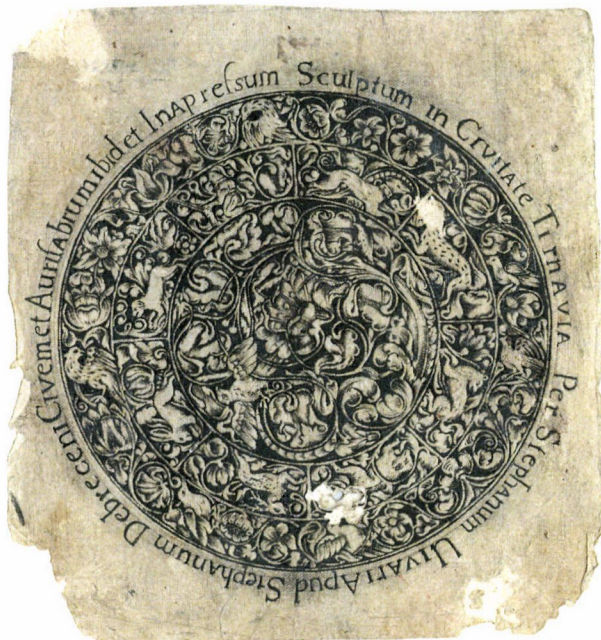 Sculptum in Crvitate TirnAviA Per Stephanum UivAri Apud Stephanum Debreceni Civem et Aurifabrum Ibid et InAprefsum